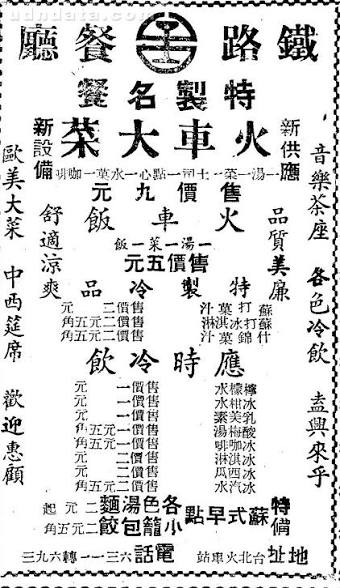 udndata.com
鐵路餐廳
特製名餐
火車大菜
新供應
新設備
一湯一菜一土司一點心一水菓一咖啡
售價九元
火車飯
一湯一菜一飯
售價五元
品質美廉
舒適涼爽
特製冷品
蘇打菓汁 售價二元
蘇打冰淇淋 售價二元五角
什錦菓汁 售價二元五角
應時冷飲
檸檬水 售價一元
冰柑水 售價一元
冰乳美素 售價一元
酸梅湯 售價一元五角
冰咖啡 售價一元五角
冰淇淋 售價二元
冰西瓜 售價二元
冰汽水 售價二元五角
特備蘇式早點
各色湯麵 二元起
小籠包餃 二元五角
地址台北火車站 電話六三一一轉六九三
音樂茶座 各色冷飲 盍興來乎
歐美大菜 中西筵席 歡迎惠顧